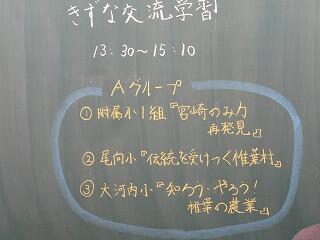 きずな交流学習
13:30～15:10
Aグループ
① 附属小1組『宮崎のみ力
再発見』
② 尾向小『伝統を受けつぐ椎葉村』
③ 大河内小『知ろう・やろう!
椎葉の農業』